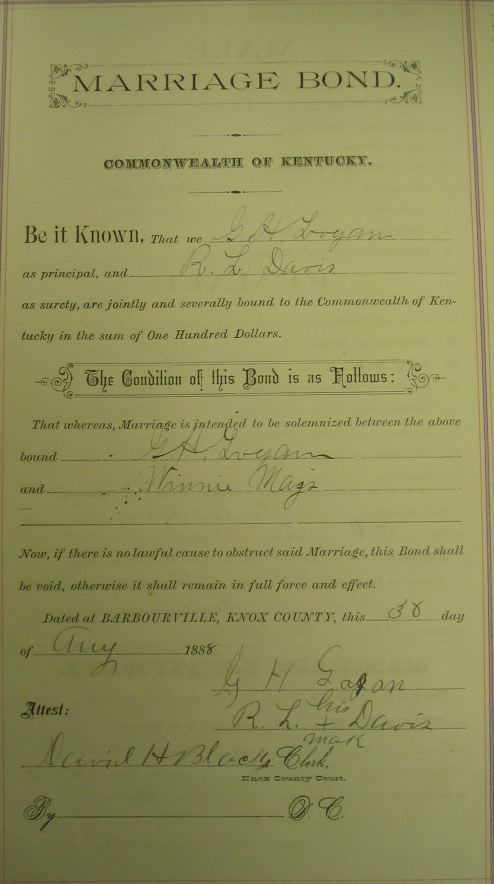 MARRIAGE BOND.
COMMONWEALTH OF KENTUCKY.
Be it Known, That we G H Logan
as principal, and R. L. Davis
as surety, are jointly and severally bound to the Commonwealth of Ken-
tucky in the sum of One Hundred Dollars.
The Condition of this Bond is as Follows:
That whereas, Marriage is intended to be solemnized between the above
bound G. H. Logan
and Winnie Mays
Now, if there is no lawful cause to obstruct said Marriage, this Bond shall
be void, otherwise it shall remain in full force and effect.
Dated at BARBOURVILLE, KNOX COUNTY, this day
of Aug 1888
G H Logan
Attest:
R. L. his + Davis
mak
David H Black Clerk,
Knox County Court.
By D. C.